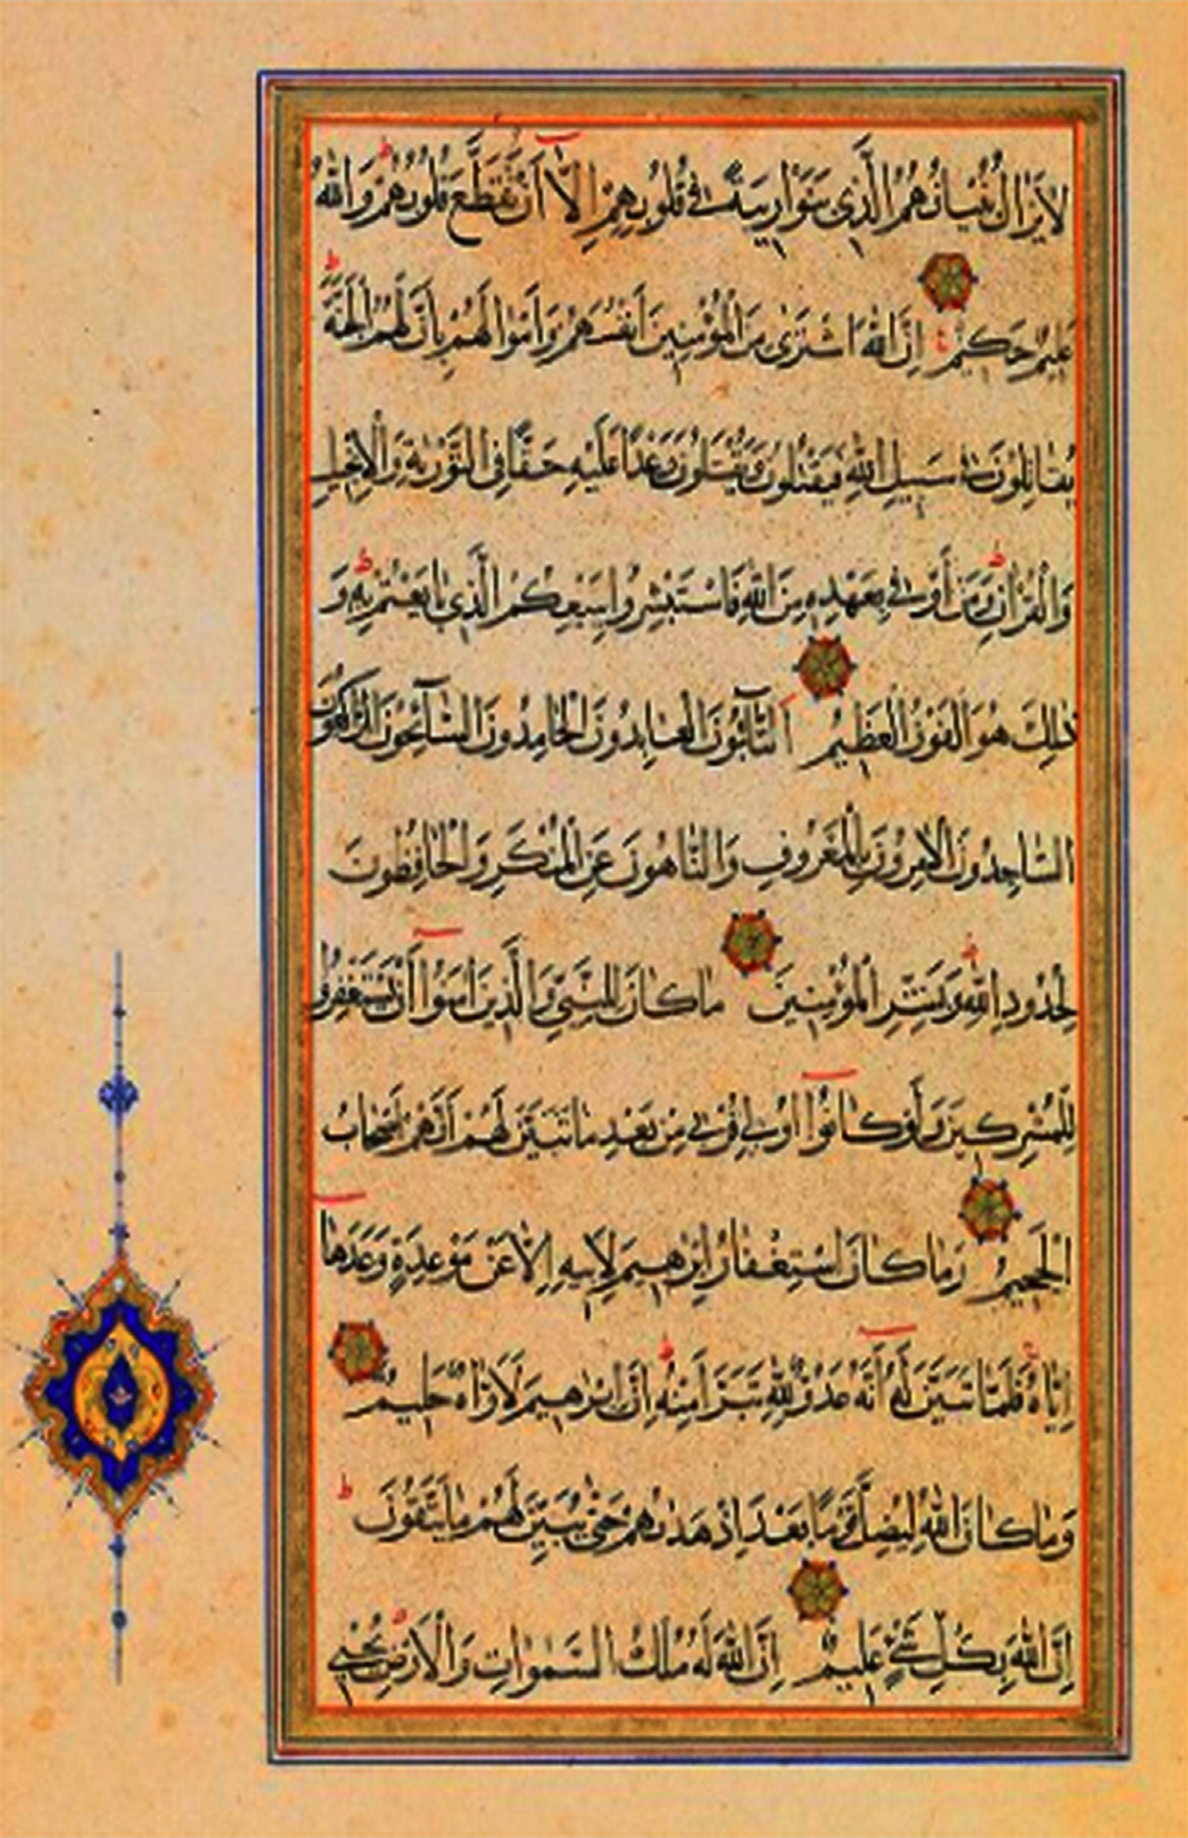 لَا يَزَالُ بُنْيَانُهُمُ الَّذِي بَنَوْا رِيبَةً فِي قُلُوبِهِمْ إِلَّا أَنْ تَقَطَّعَ قُلُوبُهُمْ وَاللَّهُ
عَلِيمٌ حَكِيمٌ إِنَّ اللَّهَ اشْتَرَى مِنَ الْمُؤْمِنِينَ أَنْفُسَهُمْ وَأَمْوَالَهُمْ بِأَنَّ لَهُمُ الْجَنَّةَ
يُقَاتِلُونَ فِي سَبِيلِ اللَّهِ فَيَقْتُلُونَ وَيُقْتَلُونَ وَعْدًا عَلَيْهِ حَقًّا فِي التَّوْرٰيةِ وَالْإِنْجِيلِ
وَالْقُرْآنِ وَمَنْ أَوْفَى بِعَهْدِهِ مِنَ اللَّهِ فَاسْتَبْشِرُوا بِبَيْعِكُمُ الَّذِي بَايَعْتُمْ بِهِ وَ
ذَلِكَ هُوَ الْفَوْزُ الْعَظِيمُ اَلتَّائِبُونَ الْعَابِدُونَ الْحَامِدُونَ السَّائِحُونَ الرَّاكِعُونَ
السَّاجِدُونَ الْآمِرُونَ بِالْمَعْرُوفِ وَالنَّاهُونَ عَنِ الْمُنْكَرِ وَالْحَافِظُونَ
لِحُدُودِ اللَّهِ وَبَشِّرِ الْمُؤْمِنِينَ مَا كَانَ لِلنَّبِيِّ وَالَّذِينَ آمَنُوا أَنْ يَسْتَغْفِرُوا
لِلْمُشْرِكِينَ وَلَوْ كَانُوا أُولِي قُرْبَى مِنْ بَعْدِ مَا تَبَيَّنَ لَهُمْ أَنَّهُمْ أَصْحَابُ
الْجَحِيمِ وَمَا كَانَ اسْتِغْفَارُ إِبْرٰهِيمَ لِأَبِيهِ إِلَّا عَنْ مَوْعِدَةٍ وَعَدَهَا
إِيَّاهُ فَلَمَّا تَبَيَّنَ لَهُ أَنَّهُ عَدُوٌّ لِلَّهِ تَبَرَّأَ مِنْهُ إِنَّ إِبْرٰهِيمَ لَأَوَّاهٌ حَلِيمٌ
وَمَا كَانَ اللَّهُ لِيُضِلَّ قَوْمًا بَعْدَ إِذْ هَدٰيهُمْ حَتَّى يُبَيِّنَ لَهُمْ مَا يَتَّقُونَ
إِنَّ اللَّهَ بِكُلِّ شَيْءٍ عَلِيمٌ إِنَّ اللَّهَ لَهُ مُلْكُ السَّمٰوَاتِ وَالْأَرْضِ يُحْيِي